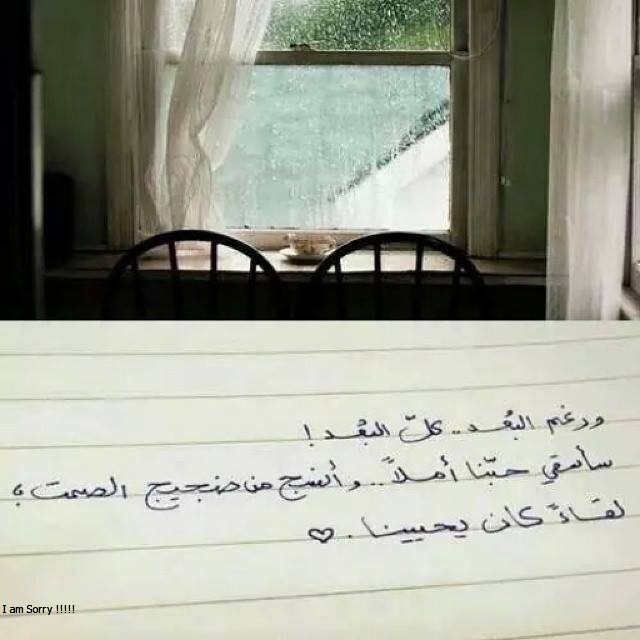 ورغم البُعد.. كلّ البُعد!
سأسقي حبّنا أملاً.. وأنسج من ضجيج الصمت؛
لقاءً كان يحيينا. ♡
I am Sorry !!!!!